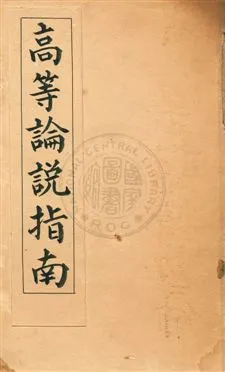 高等論説指南
NATIONAL CENTRAL LIBRARY
R.O.C
國家圖書館